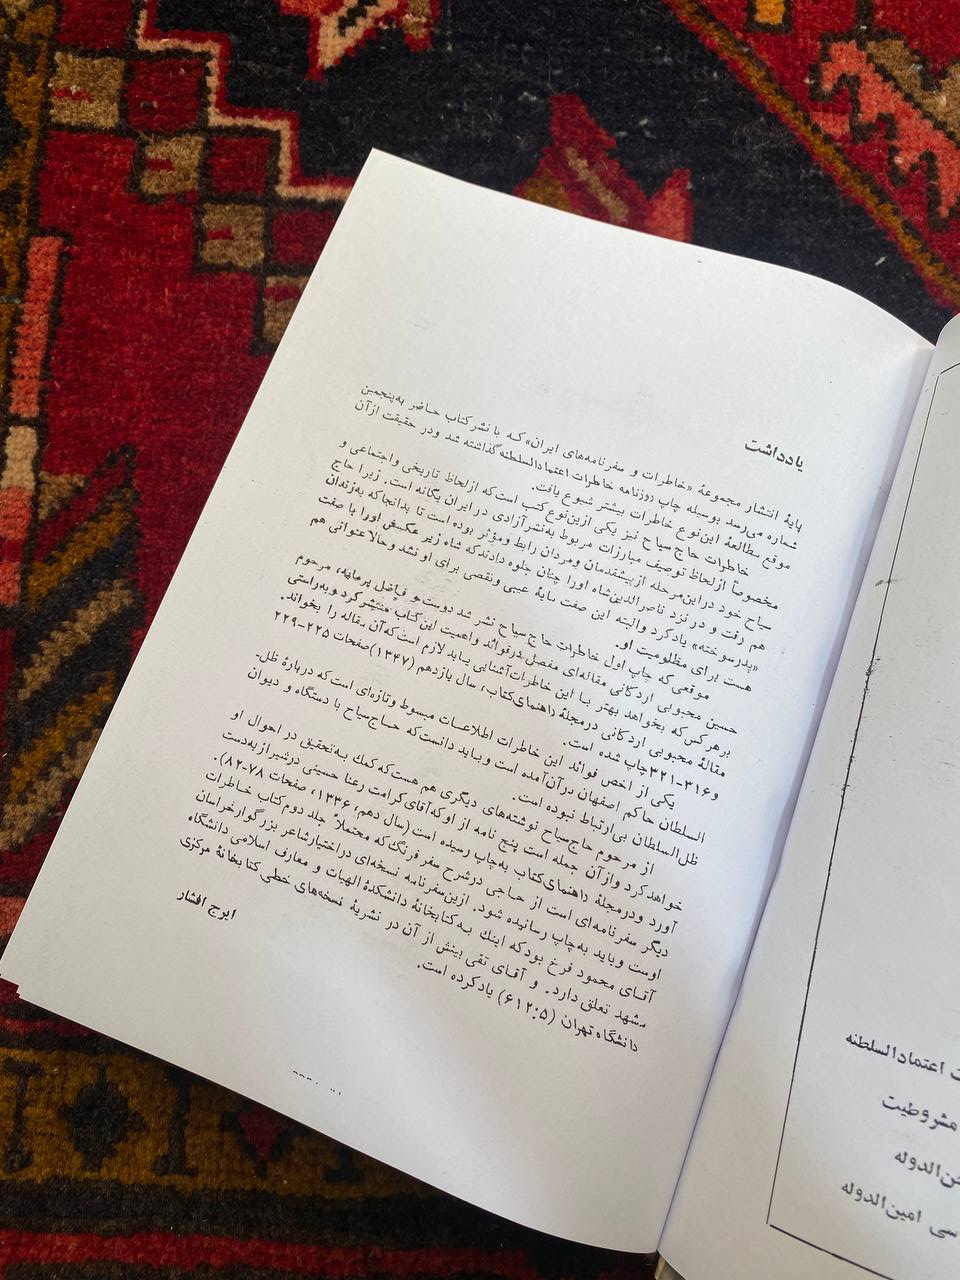 یادداشت
پایهٔ انتشار مجموعهٔ «خاطرات و سفرنامه‌های ایران» که با نشر کتاب حاضر به پنجمین
شماره می‌رسد بوسیله چاپ روزنامه خاطرات اعتمادالسلطنه گذاشته شد و در حقیقت از آن
موقع مطالعهٔ این نوع خاطرات بیشتر شیوع یافت.
خاطرات حاج سیاح نیز یکی ازین نوع کتب است که از لحاظ تاریخی و اجتماعی و
مخصوصاً از لحاظ توصیف مبارزات مربوط به نشر آزادی در ایران یگانه است. زیرا حاج
سیاح خود در این مرحله از پیشقدمان و مردان رابط و مؤثر بوده است تا بدانجا که به زندان
هم رفت و در نزد ناصرالدین‌شاه او را چنان جلوه دادند که شاه زیر عکسش او را با صفت
«پدرسوخته» یاد کرد و البته این صفت مایهٔ عیبی و نقصی برای او نشد و حالا عنوانی هم
هست برای مظلومیت او.
موقعی که چاپ اول خاطرات حاج سیاح نشر شد دوست و فاضل مرحوم
حسین محبوبی اردکانی مقاله‌ای مفصل در فوائد و اهمیت این کتاب منتشر کرد و به راستی
بر هر کس که بخواهد بهتر با این خاطرات آشنایی یابد لازم است که آن مقاله را بخواند.
مقالهٔ محبوبی اردکانی در مجلهٔ راهنمای کتاب، سال یازدهم (۱۳۴۷) صفحات ۲۲۵-۲۲۹
و ۳۱۶-۳۲۱ چاپ شده است.
یکی از اخص فوائد این خاطرات اطلاعات مبسوط و تازه‌ای است که دربارهٔ ظل-
السلطان حاکم اصفهان در آن آمده است و باید دانست که حاج سیاح با دستگاه و دیوان
ظل‌السلطان بی‌ارتباط نبوده است.
از مرحوم حاج سیاح نوشته‌های دیگری هم هست که کمک به تحقیق در احوال او
خواهد کرد و از آن جمله است پنج نامه از او که آقای کرامت رعنا حسینی در شیراز به دست
آورد و در مجلهٔ راهنمای کتاب به چاپ رسیده است (سال دهم، ۱۳۳۶، صفحات ۷۸-۸۲).
دیگر سفرنامه‌ای است از حاجی در شرح سفر فرنگ که محتملاً جلد دوم کتاب خاطرات
اوست و باید به چاپ رسانیده شود. ازین سفرنامه نسخه‌ای در اختیار شاعر بزرگوار خراسان
آقای محمود فرخ بود که اینک به کتابخانهٔ دانشکدهٔ الهیات و معارف اسلامی دانشگاه
مشهد تعلق دارد. و آقای تقی بینش از آن در نشریهٔ نسخه‌های خطی کتابخانهٔ مرکزی
دانشگاه تهران (۶۱۲:۵) یاد کرده است.
ایرج افشار
اعتمادالسلطنه
مشروطیت
امین‌الدوله